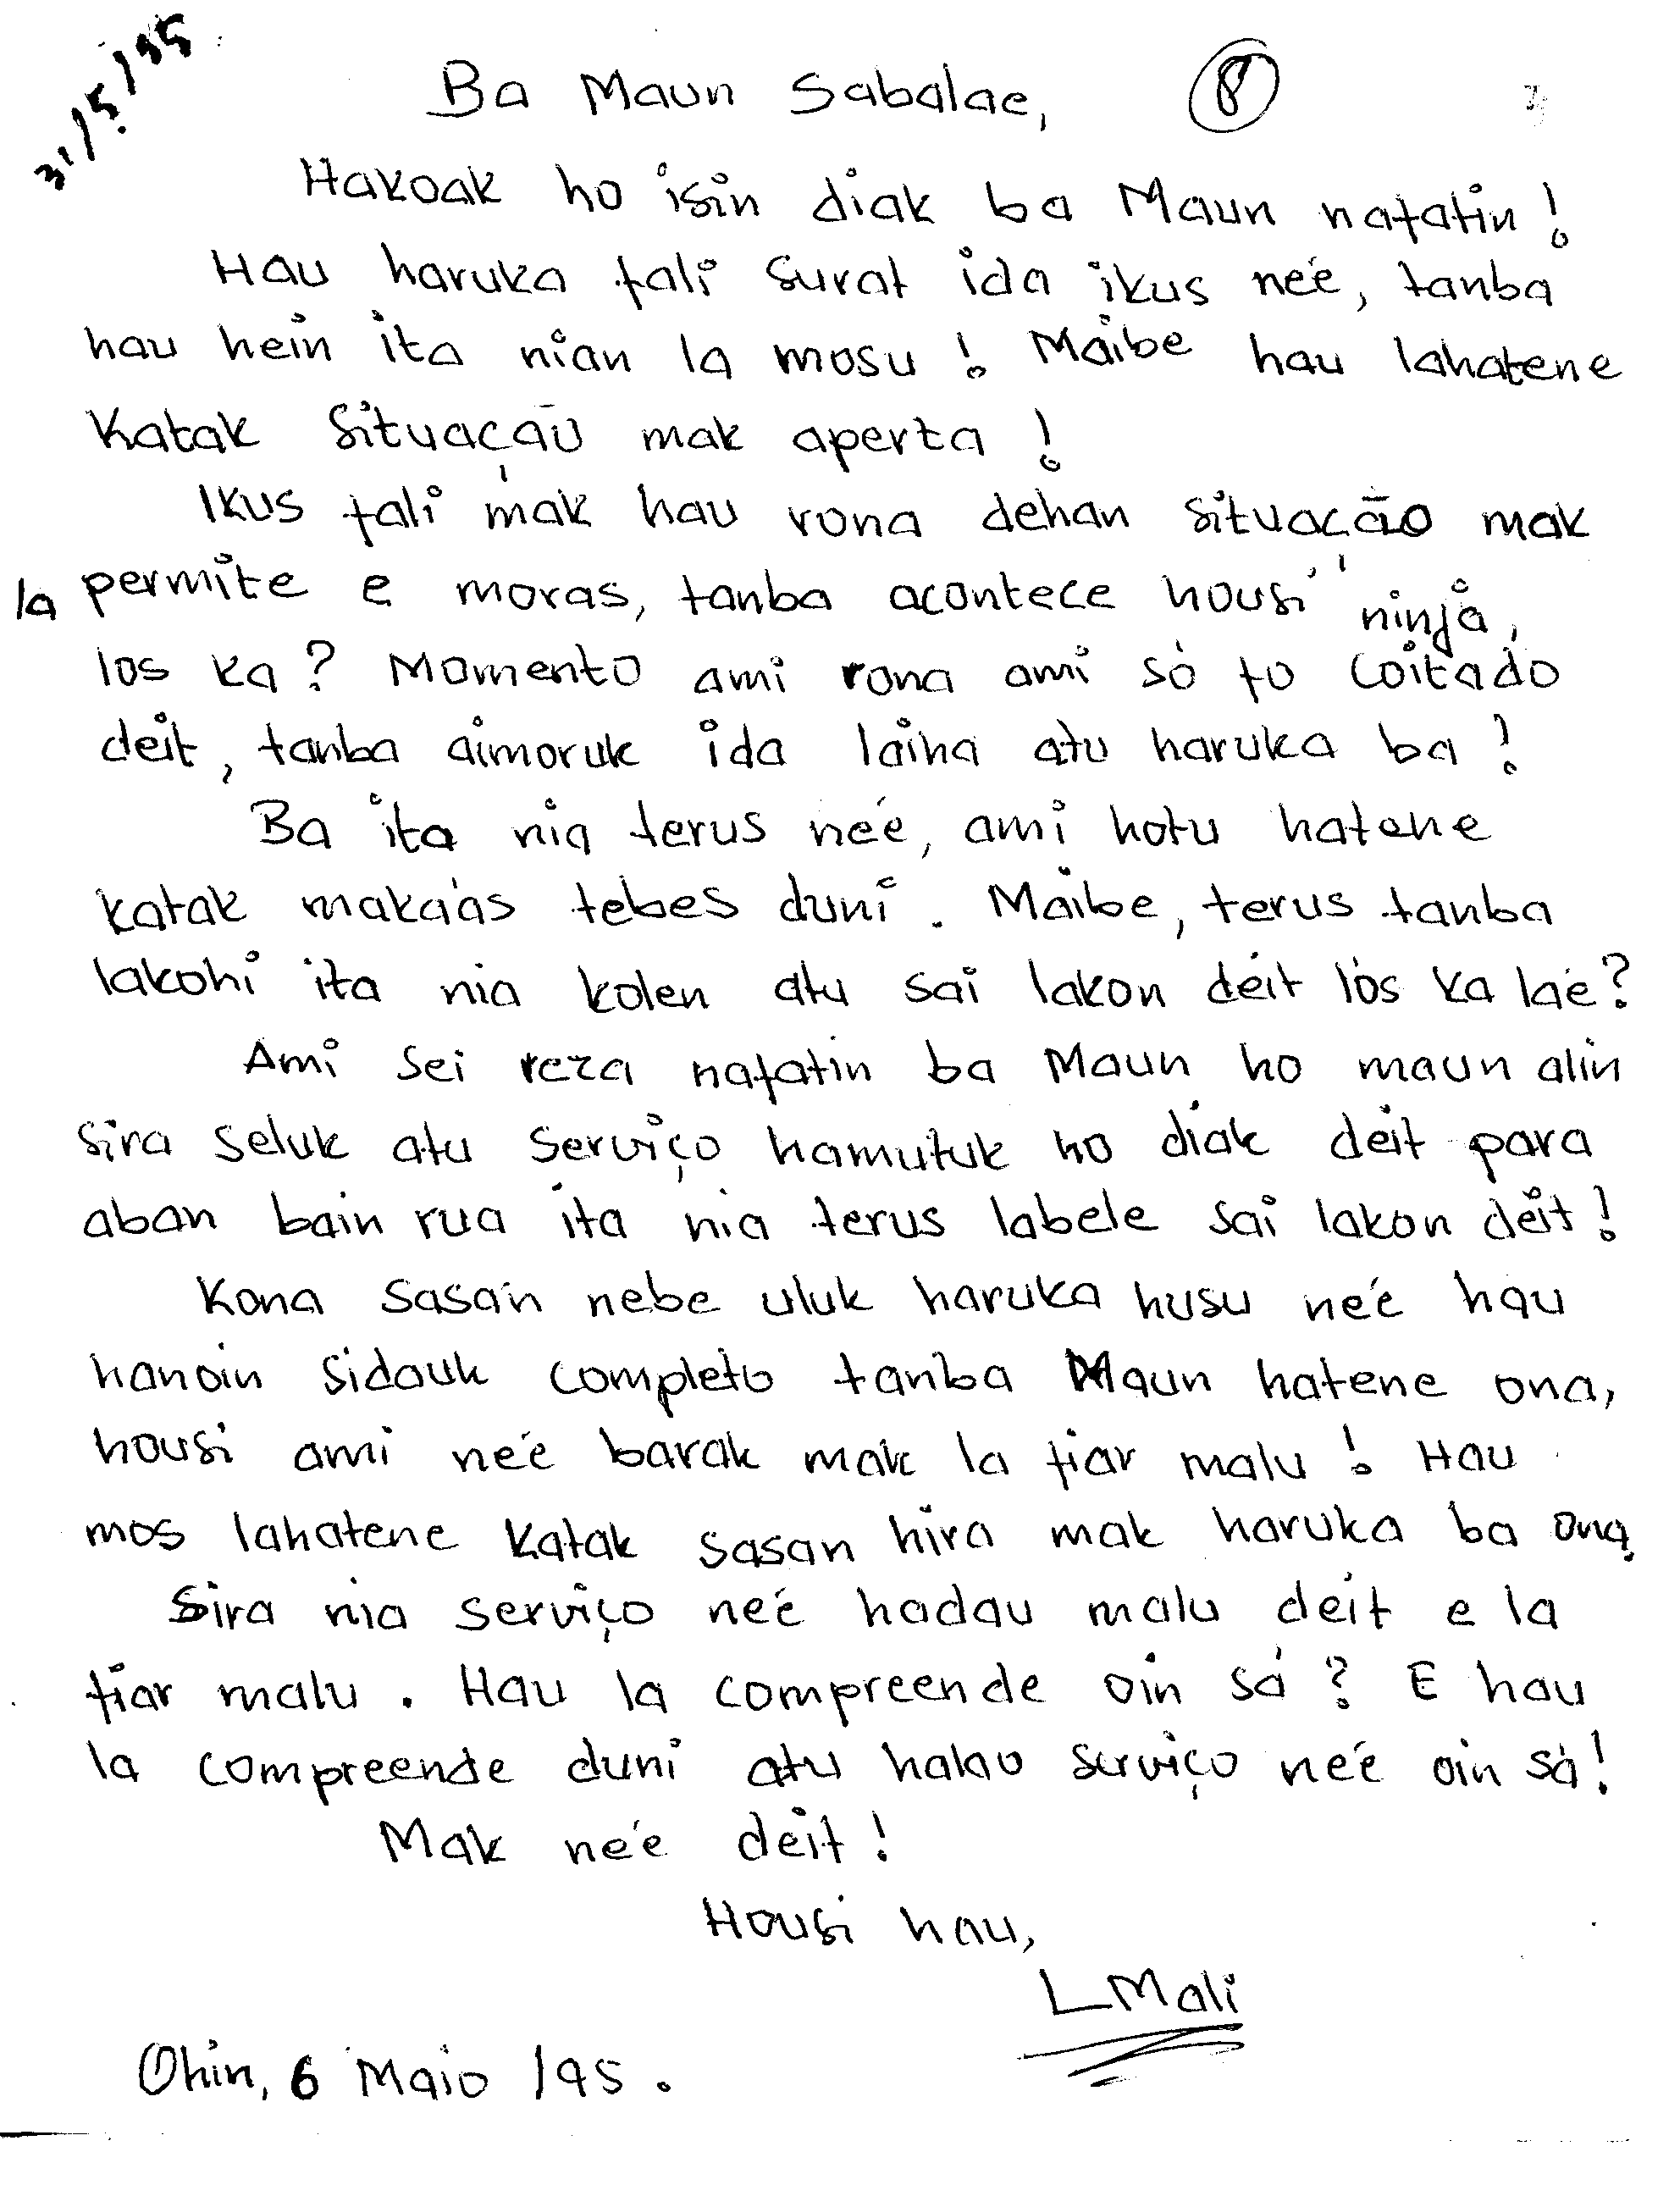 31/5/95
Ba Maun Sabalae, 8
Hakoak ho isin diak ba Maun nafatin!
Hau haruka fali surat ida ikus neé, tanba
hau hein ita nian la mosu! Maibe hau lahatene
Katak Situação mak aperta!
Ikus fali mak hau rona dehan situação mak
la permite e moras, tanba acontece housi ninja,
los ka? Momento ami rona ami só fo coitado
deit, tanba aimoruk ida laiha atu haruka ba!
Ba ita nia terus neé, ami hotu hatene
katak makaás tebes duni. Maibe, terus tanba
lakohi ita nia kolen atu sai lakon deit lós ka laé?
Ami sei reza nafatin ba Maun ho maun alin
sira seluk atu serviço hamutuk ho diak deit para
aban bain rua ita nia terus labele sai lakon deit!
Kona sasan nebe uluk haruka husu neé hau
hanoin sidauk completo tanba Maun hatene ona,
housi ami neé barak mak la fiar malu! Hau
mos lahatene katak sasan hira mak haruka ba ona.
Sira nia serviço neé hadau malu deit e la
fiar malu. Hau la compreende oin sá? E hau
la compreende duni atu halao serviço neé oin sá!
Mak neé deit!
Housi hau,
LMali
Ohin, 6 Maio /95.